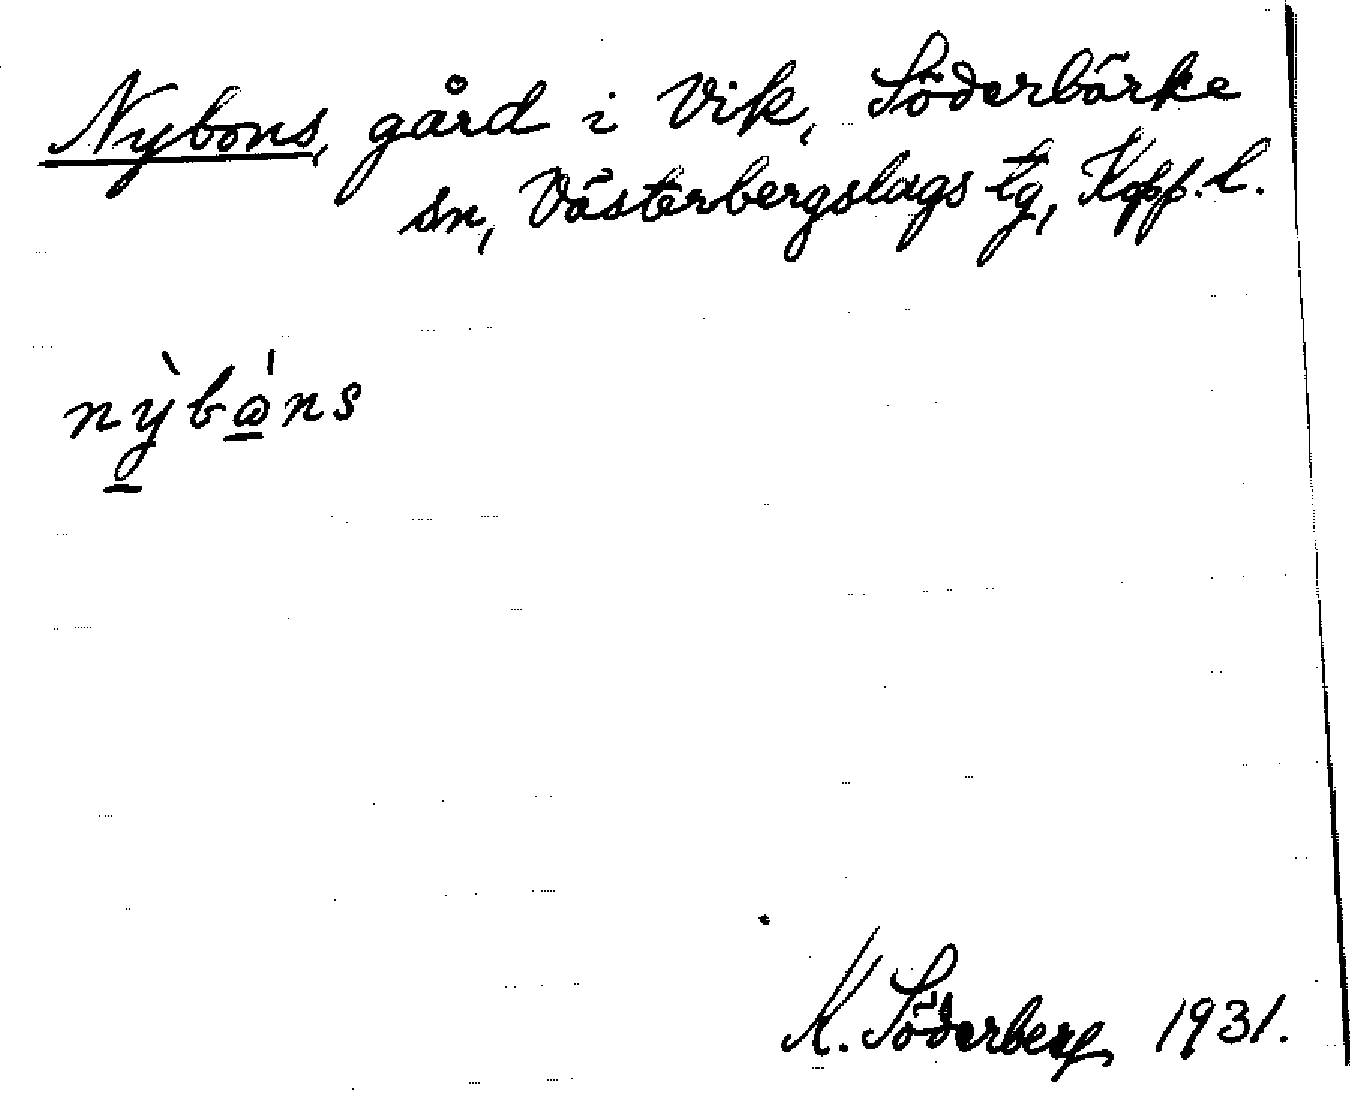 Nybons, gård i Vik, Söderbärke
sn, Västerbergslags tg, Kopp. l.
nỳbɷ́ns
K. Söderberg 1931.